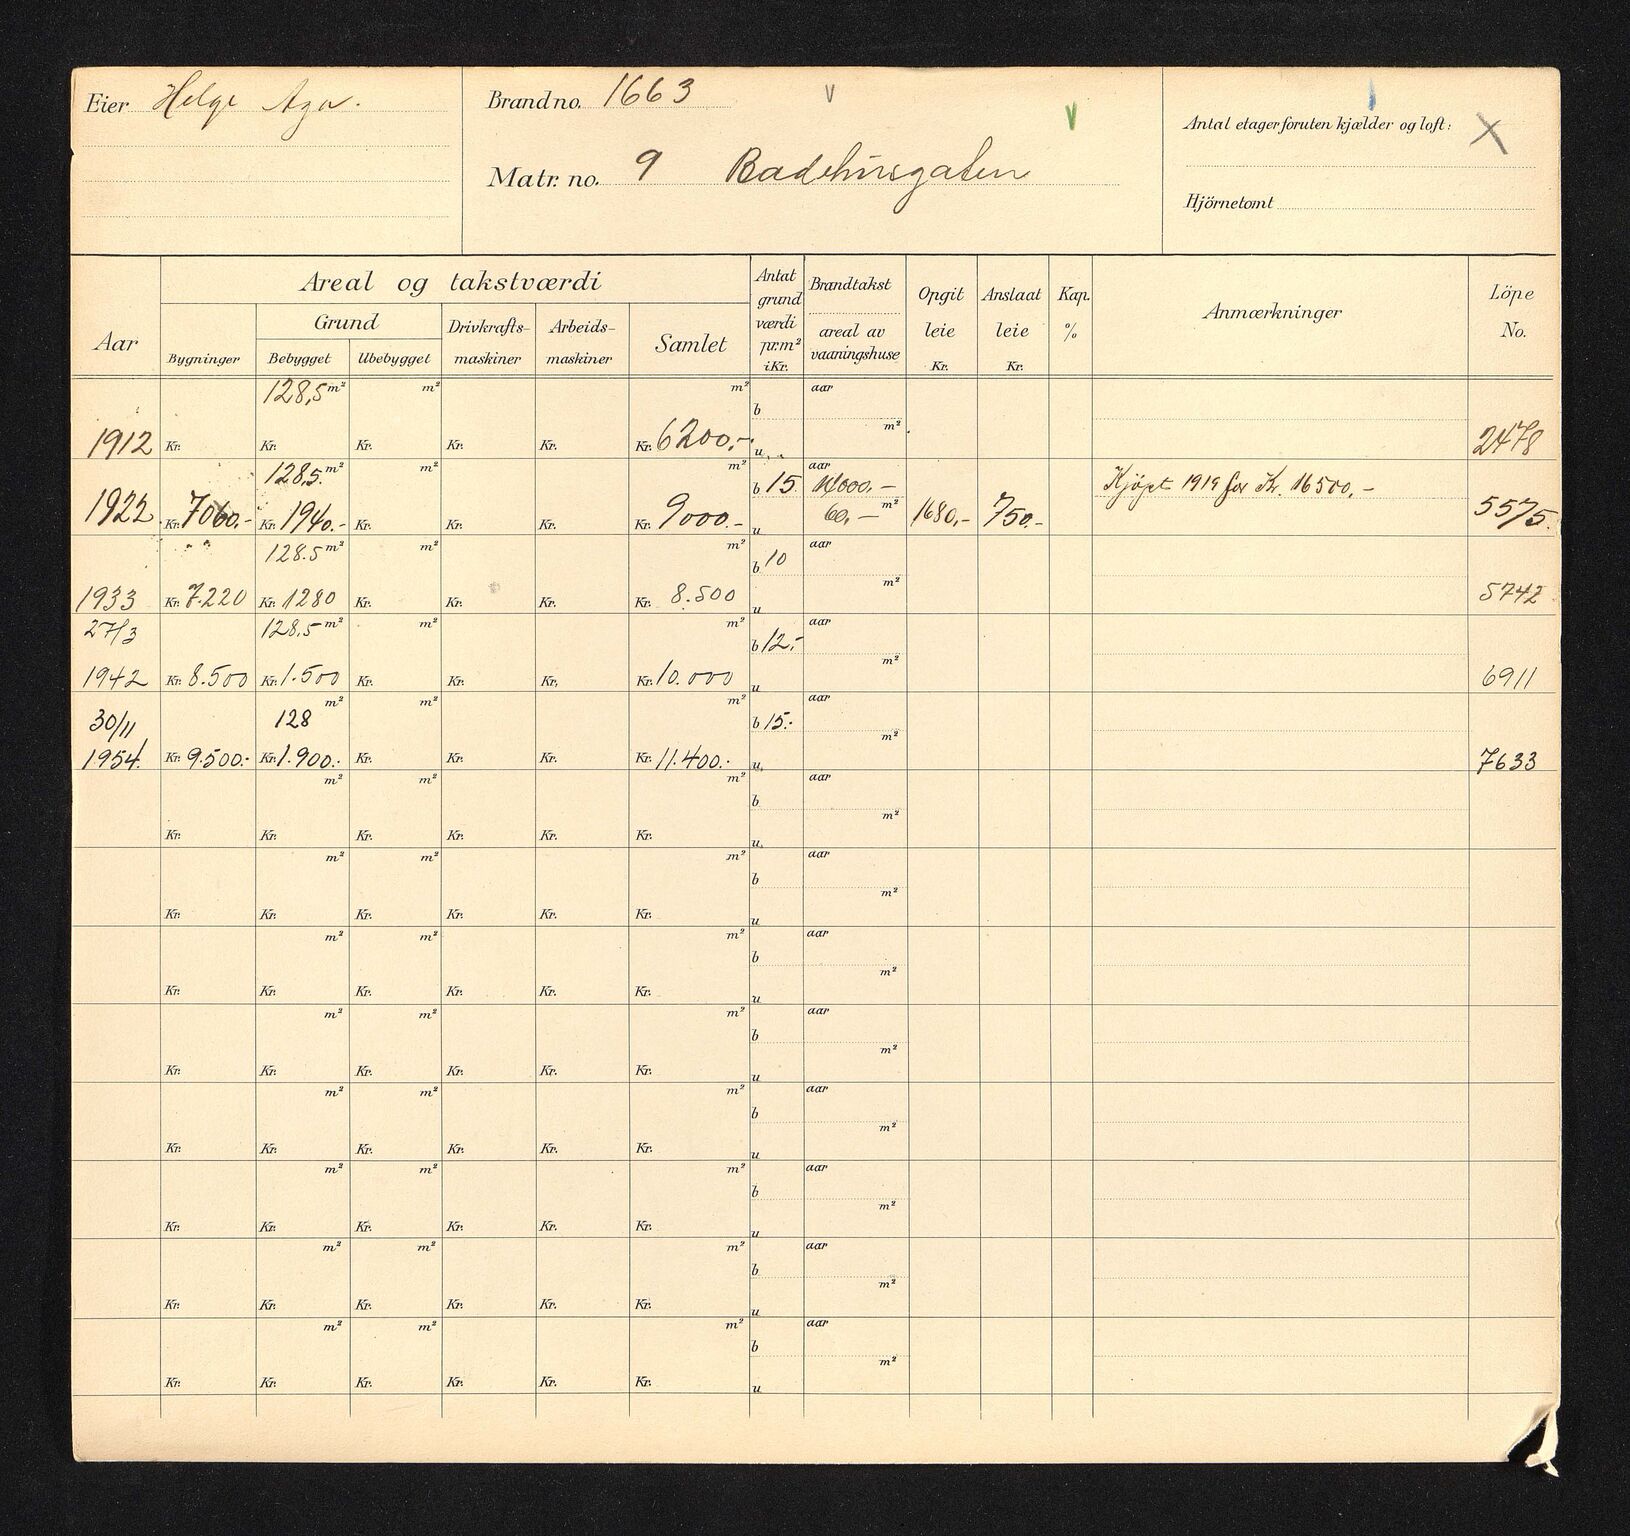 Eier Helge Aga.
Brandno. 1663 v
v
Matr. no. 9 Badehusgaten
Antal etager foruten kjælder og loft: X
Hjörnetomt
Aar
Areal og takstværdi
Bygninger
Grund
Bebygget Ubebygget
Drivkrafts-
maskiner
Arbeids-
maskiner
Samlet
Antat
grund
værdi
pr.m²
i Kr.
Brandtakst
areal av
vaaningshuse
Opgit
leie
Kr.
Anslaat
leie
Kr.
Kap.
%
Anmærkninger
Löpe
No.
128,5 m² m² m² b aar
m²
1912 Kr. Kr. Kr. Kr. Kr. Kr. 6200,- u 2478
128,5. m² m² m² b 15 aar 14000,- Kjöpt 1919 for Kr. 16500,-
1922 Kr. 7060.- Kr. 1940.- Kr. Kr. Kr. Kr. 9000.- u 60,- m² 1680,- 750.- 5575.
128.5 m² m² m² b 10 aar
m²
1933 Kr. 7.220 Kr. 1280 Kr. Kr. Kr. Kr. 8.500 u 5742
27/3 128,5 m² m² m² b 12,- aar
m²
1942 Kr. 8.500 Kr. 1.500 Kr. Kr. Kr. Kr. 10.000 u 6911
30/11 128 m² m² m² b 15.- aar
m²
1954. Kr. 9.500.- Kr. 1.900.- Kr. Kr. Kr. Kr. 11.400.- u 7633
m² m² m² b aar
m²
Kr. Kr. Kr. Kr. Kr. Kr. u
m² m² m² b aar
m²
Kr. Kr. Kr. Kr. Kr. Kr. u
m² m² m² b aar
m²
Kr. Kr. Kr. Kr. Kr. Kr. u
m² m² m² b aar
m²
Kr. Kr. Kr. Kr. Kr. Kr. u
m² m² m² b aar
m²
Kr. Kr. Kr. Kr. Kr. Kr. u
m² m² m² b aar
m²
Kr. Kr. Kr. Kr. Kr. Kr. u
m² m² m² b aar
m²
Kr. Kr. Kr. Kr. Kr. Kr. u
m² m² m² b aar
m²
Kr. Kr. Kr. Kr. Kr. Kr. u